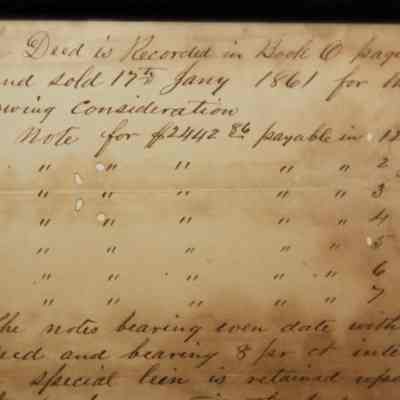 Deed is Recorded in Book O page
and sold 17th Jany 1861 for th
owing Consideration
Note for $2442 86 payable in 12
" " " " " 2
" " " " " 3
" " " " " 4
" " " " " 5
" " " " " 6
" " " " " 7
The notes bearing even date with
eed and bearing 8 pr ct inte
special lein is retained upo